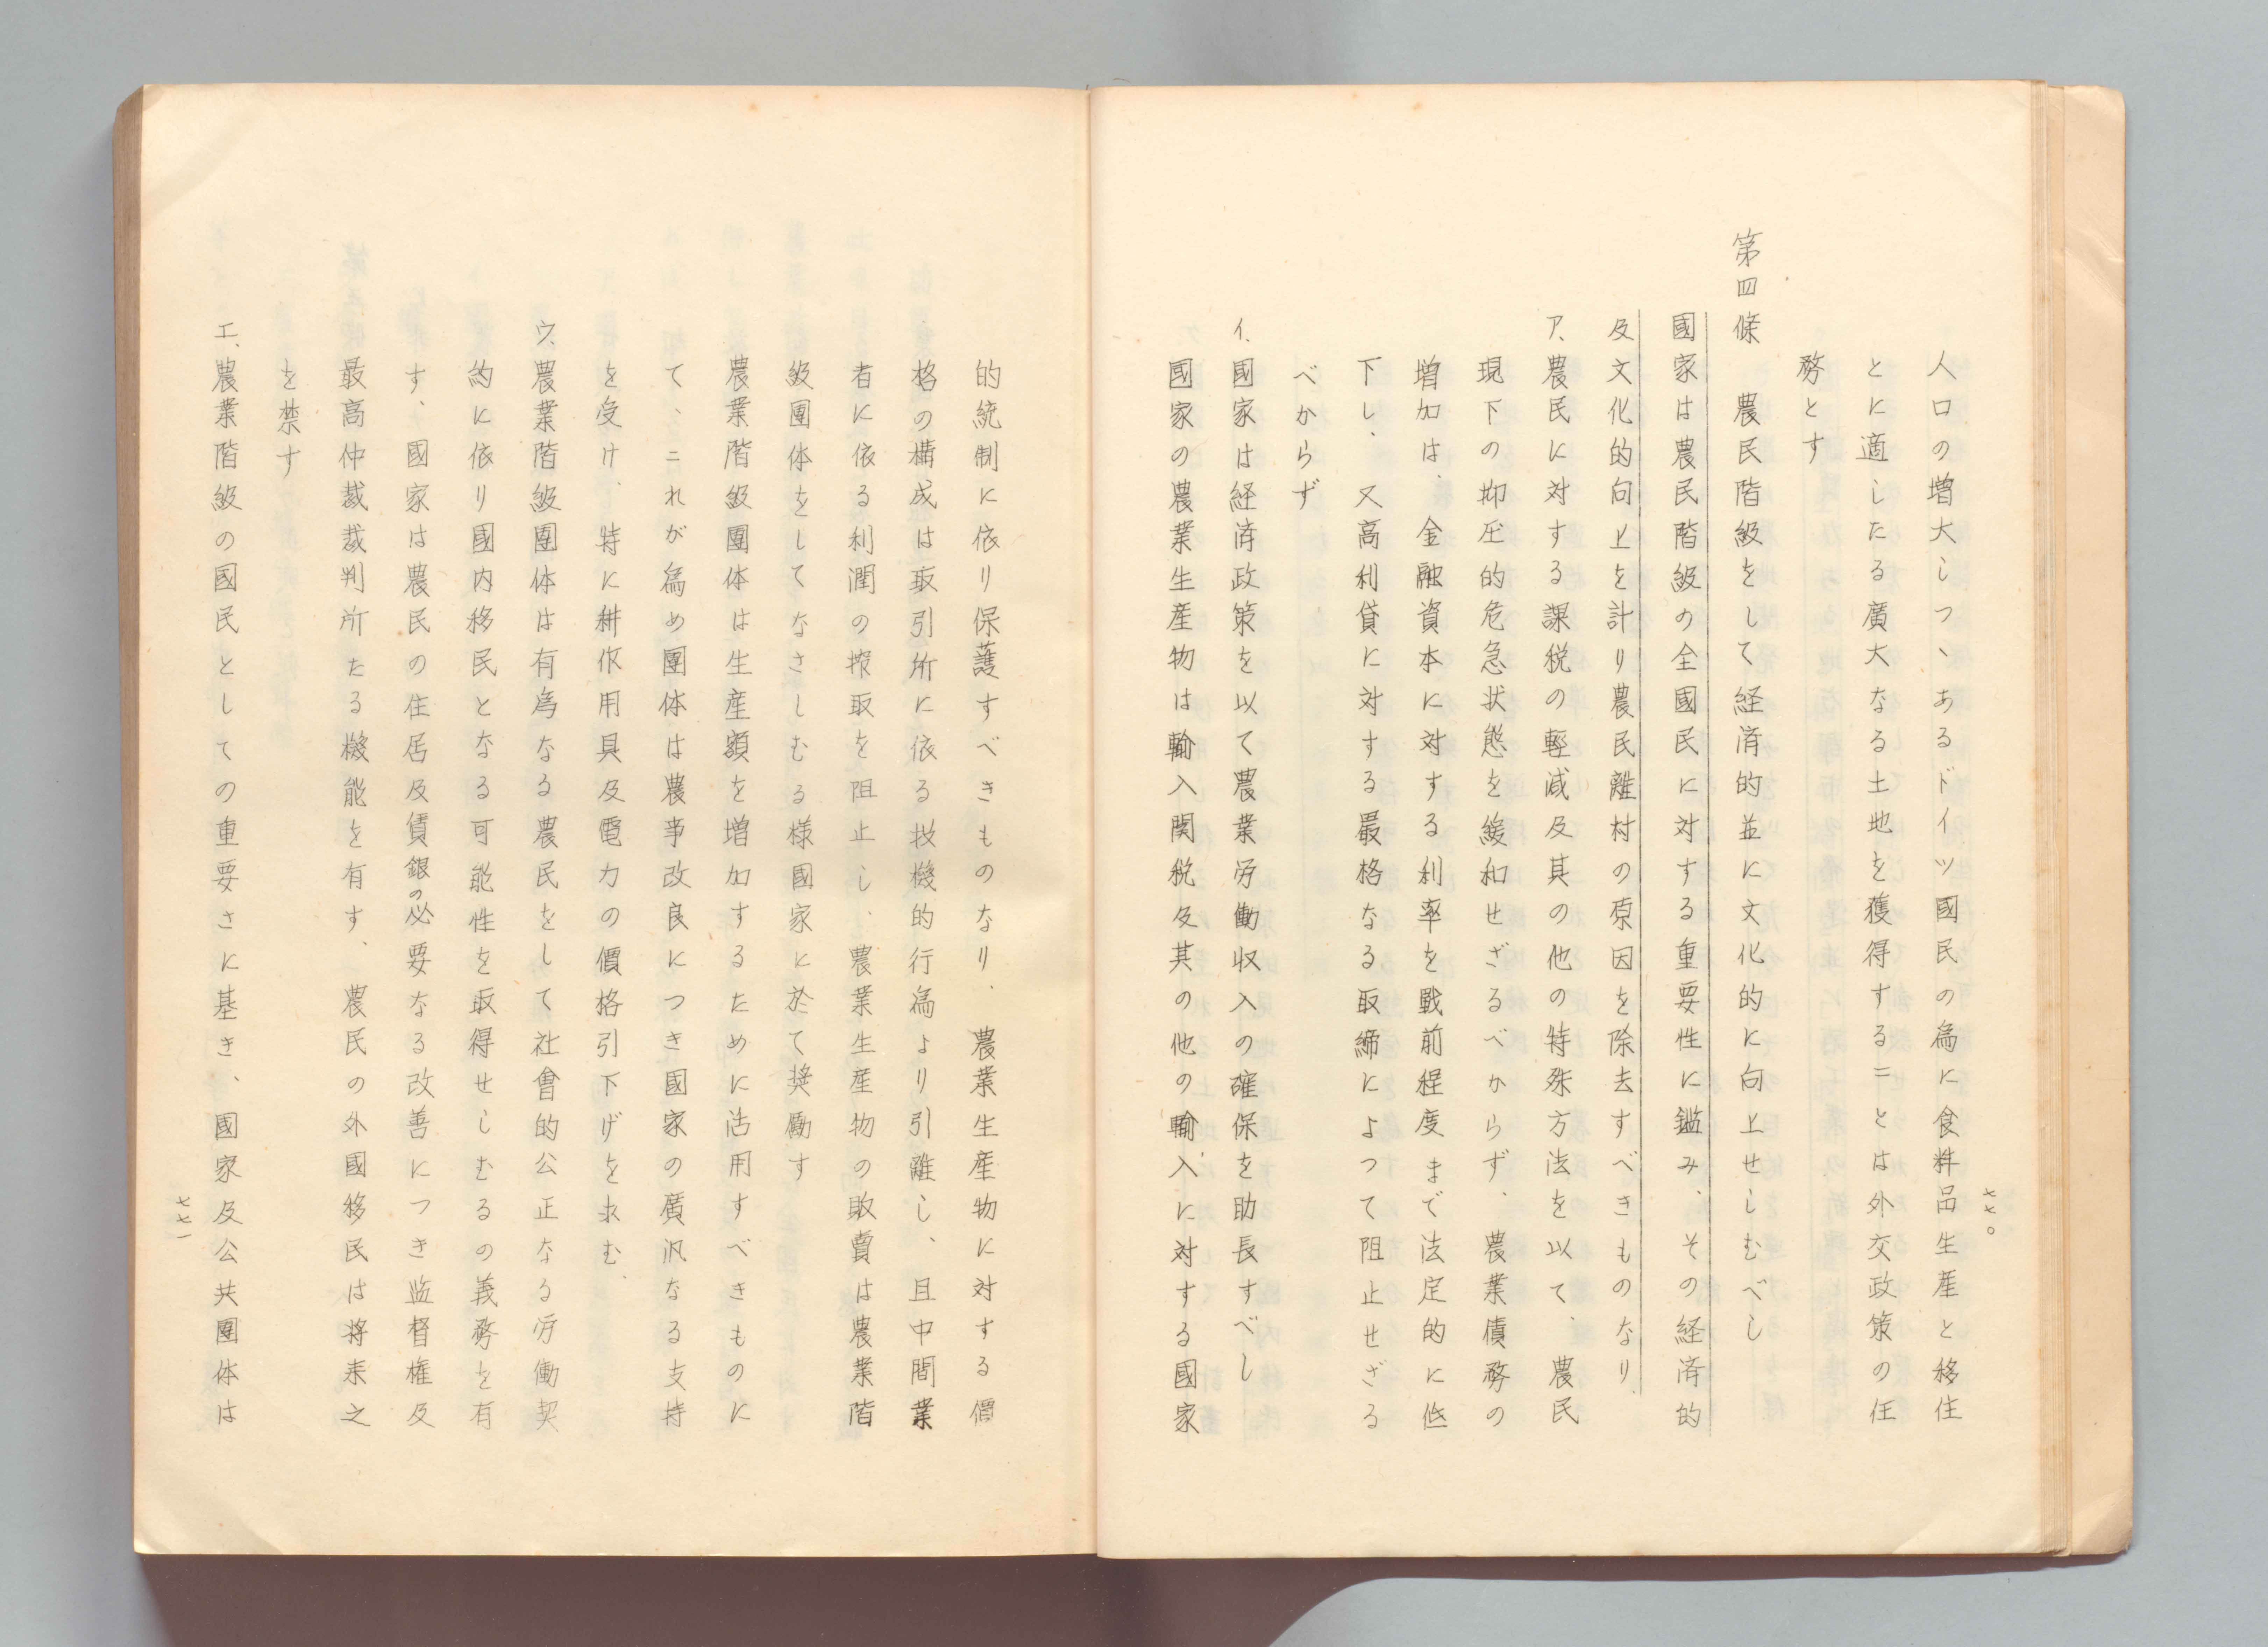 七七〇
人口の増大しつヽあるドイツ國民の爲に食料品生産と移住
とに適したる廣大なる土地を獲得することは外交政策の任
務とす
第四條　農民階級をして経済的並に文化的に向上せしむべし
國家は農民階級の全國民に対する重要性に鑑み、その経済的
及文化的向上を計り農民離村の原因を除去すべきものなり、
ア、農民に対する課税の輕減及其の他の特殊方法を以て、農民
現下の抑圧的危急状態を緩和せざるべからず、農業債務の
増加は、金融資本に対する利率を戰前程度まで法定的に低
下し、又高利貸に対する嚴格なる取締によつて阻止せざる
べからず
イ、國家は経済政策を以て農業労働収入の確保を助長すべし
國家の農業生産物は輸入関税及其の他の輸入に対する國家
的統制に依り保護すべきものなり、農業生産物に対する價
格の構成は取引所に依る投機的行爲より引離し、且中間業
者に依る利潤の搾取を阻止し、農業生産物の販賣は農業階
級團体をしてなさしむる様國家に於て奨勵す
農業階級團体は生産額を増加するために活用すべきものに
て、これが爲め團体は農事改良につき國家の廣汎なる支持
を受け、特に耕作用具及電力の價格引下げを求む、
ウ、農業階級團体は有爲なる農民をして社會的公正なる労働契
約に依り國内移民となる可能性を取得せしむるの義務を有
す、國家は農民の住居及賃銀の必要なる改善につき監督権及
最高仲裁裁判所たる機能を有す、農民の外國移民は将来之
を禁す
エ、農業階級の國民としての重要さに基き、國家及公共團体は
七七一